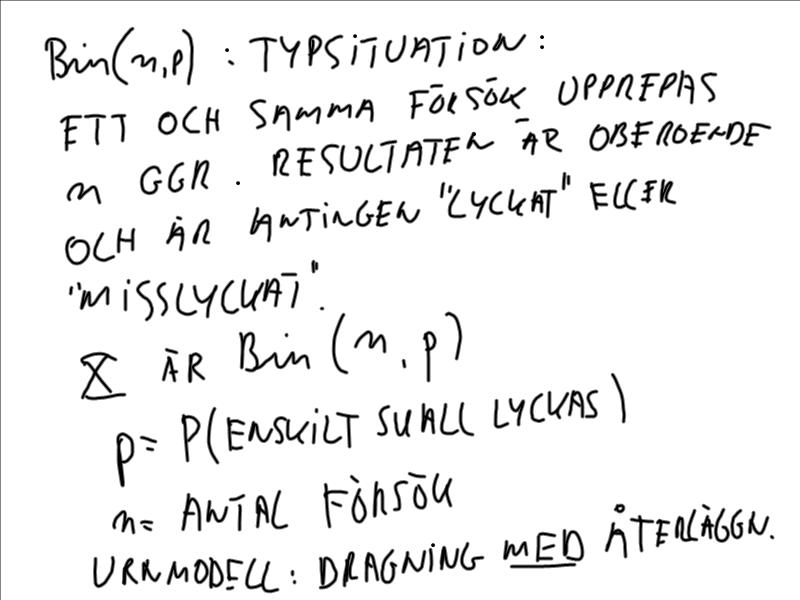 Bin(n,p) : TYPSITUATION:
ETT OCH SAMMA FÖRSÖK UPPREPAS
n GGR. RESULTATEN ÄR OBEROENDE
OCH ÄR ANTINGEN "LYCKAT" ELLER
"MISSLYCKAT".
X ÄR Bin(n,p)
p= P(ENSKILT SKALL LYCKAS)
n= ANTAL FÖRSÖK
URNMODELL: DRAGNING MED ÅTERLÄGGN.